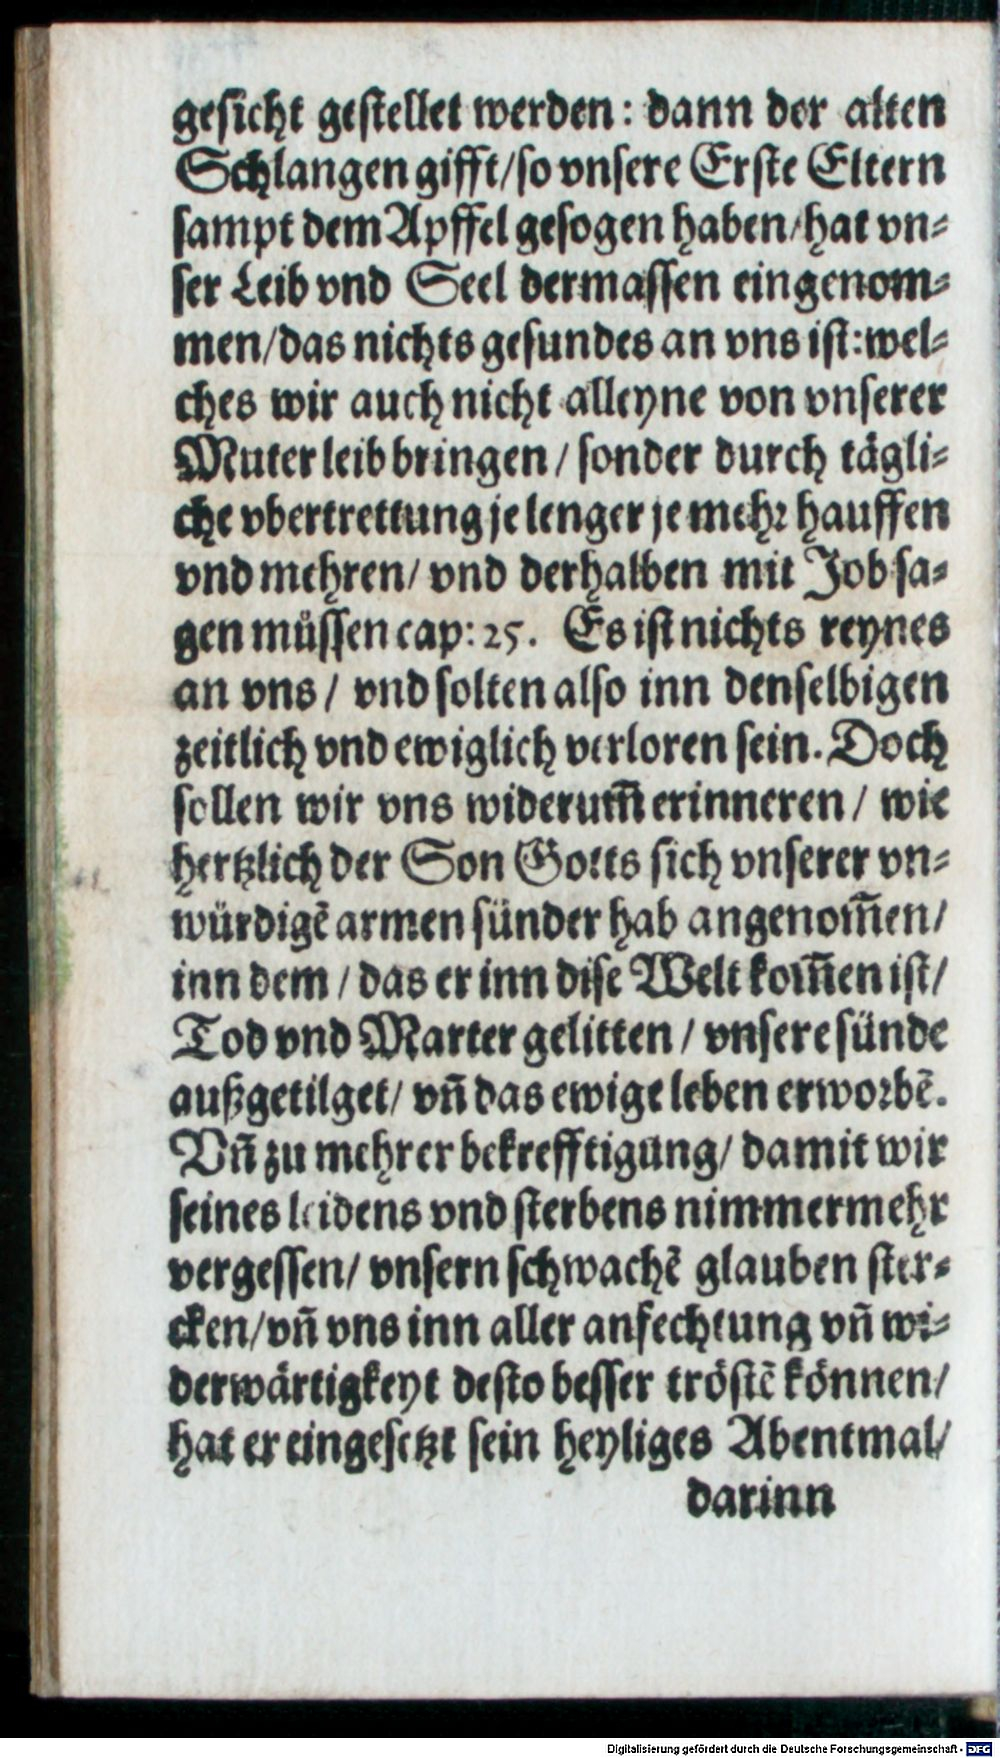 gesicht gestellet werden: dann der alten
Schlangen gifft/so vnsere Erste Eltern
sampt dem Apffel gesogen haben/hat vn⸗
ser Leib vnd Seel dermassen eingenom⸗
men/das nichts gesundes an vns ist:wel⸗
ches wir auch nicht alleyne von vnserer
Muter leib bringen / sonder durch tägli⸗
che vbertrettung je lenger je mehr hauffen
vnd mehren/ vnd derhalben mit Job sa⸗
gen müssen cap: 25. Es ist nichts reynes
an vns / vnd solten also inn denselbigen
zeitlich vnd ewiglich verloren sein. Doch
sollen wir vns widerum̃ erinneren / wie
hertzlich der Son Gotts sich vnserer vn⸗
würdigẽ armen sünder hab angenom̃en/
inn dem / das er inn dise Welt kom̃en ist/
Tod vnd Marter gelitten / vnsere sünde
außgetilget/ vñ das ewige leben erworbẽ.
Vñ zu mehrer bekrefftigung/ damit wir
seines leidens vnd sterbens nimmermehr
vergessen/ vnsern schwachẽ glauben ster⸗
cken/vñ vns inn aller anfechtung vñ wi⸗
derwärtigkeyt desto besser tröstẽ können/
hat er eingesetzt sein heyliges Abentmal/
darinn
Digitalisierung gefördert durch die Deutsche Forschungsgemeinschaft - DFG